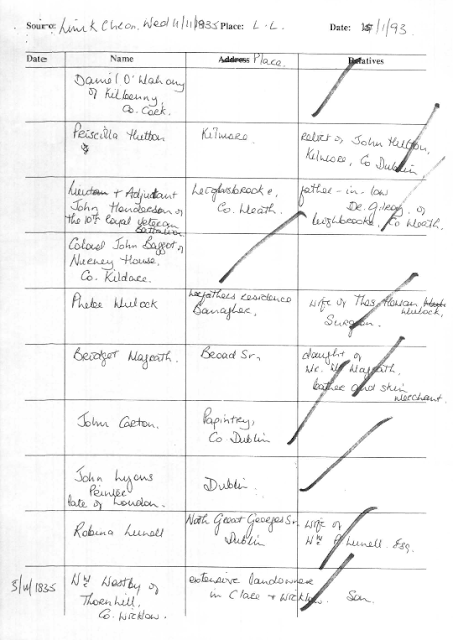 Source: Limk Chron, Wed 11/11/1835 Place: L.L. Date: 15/1/93.
Date Name Address Place. Relatives
Daniel O'Mahony
of Kilbenny
Co. Cork.
Priscilla Hutton Kilmore. relict of John Hutton,
Kilmore, Co Dublin
Lieutan + Adjutant Leighsbrooke, father-in-law
John Henderson of Co. Meath. Dr. Gilroy of
the 10th Royal Veteran Leighbrooke, Co Meath.
Battalion
Colonel John Baggot of
Nurney House,
Co. Kildare.
Phebe Mulock her fathers residence wife of Thos Homan
Banagher. Mulock,
Surgeon.
Bridget Magrath. Broad St. daught of
Mr. Wm Magrath.
leather and skin
merchant.
John Carton. Papintry,
Co Dublin
John Lyons Dublin.
Printer
late of London.
Robina Lunell North Great Georges St. wife of
Dublin Wm P Lunell Esq.
3/11/1835 Wm Westby of extensive landowner
Thornhill, in Clare + Wicklow. Son.
Co. Wicklow.